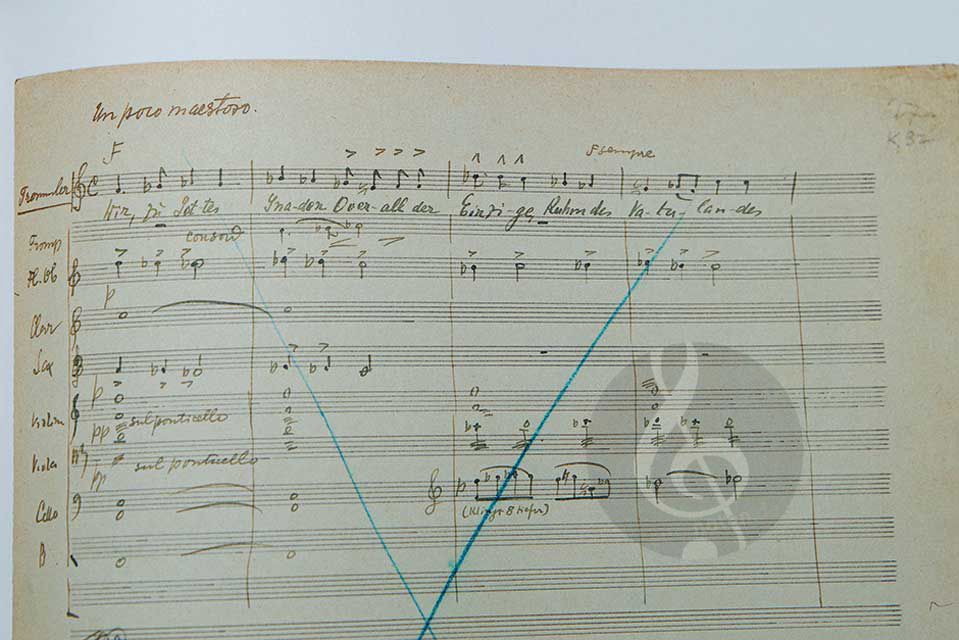 Un poco maestoso.
F
F sempre
Trommler
Wir, zu Got-tes Gna-den Over-all der Einzi-ge, Ruhm des Va-ter-lan-des
Tromp
con sord
Fl. Ob
p
Clar
Sax
p
Violin
pp sul ponticello
Viola
pp sul ponticello
Cello
p
(klingt 8 tiefer)
B